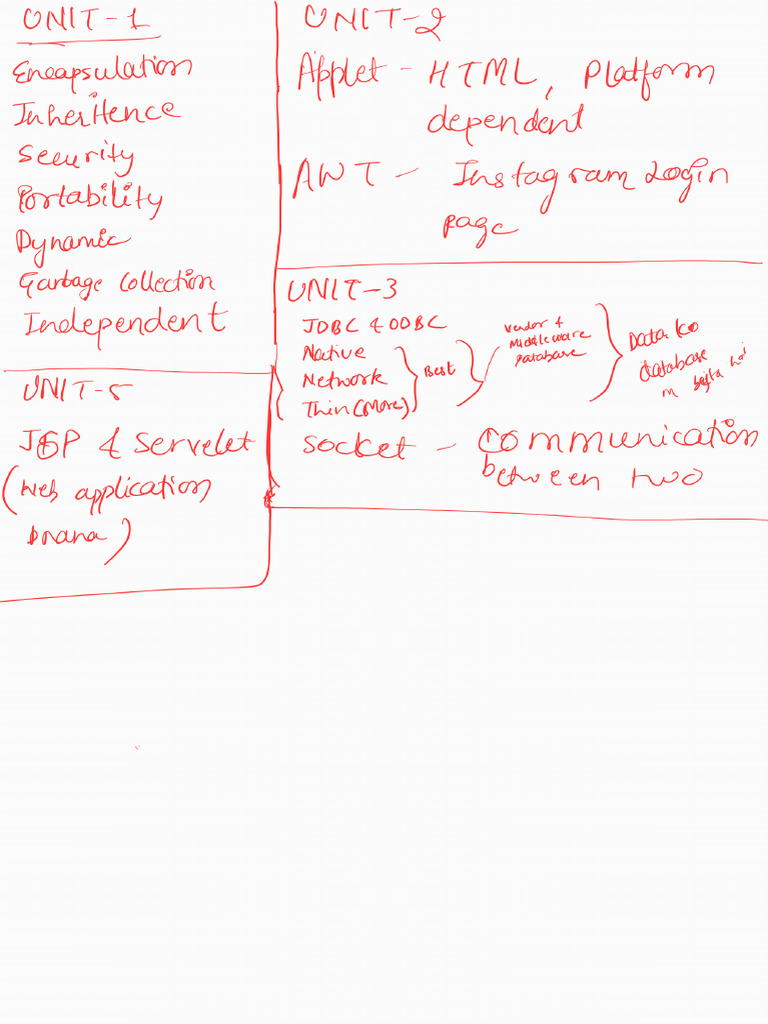 UNIT-1
Encapsulation
Inheritence
Security
Portability
Dynamic
Garbage Collection
Independent
UNIT-2
Applet - HTML, Platform
dependent
AWT - Instagram Login
page
UNIT-3
JDBC & ODBC
Native
Network
Thin (More)
Best
Vendor &
Middleware
database
Data ko
database
m bejta hai
Socket - Communication
between two
UNIT-5
JSP & Servelet
(Web application
bnana)